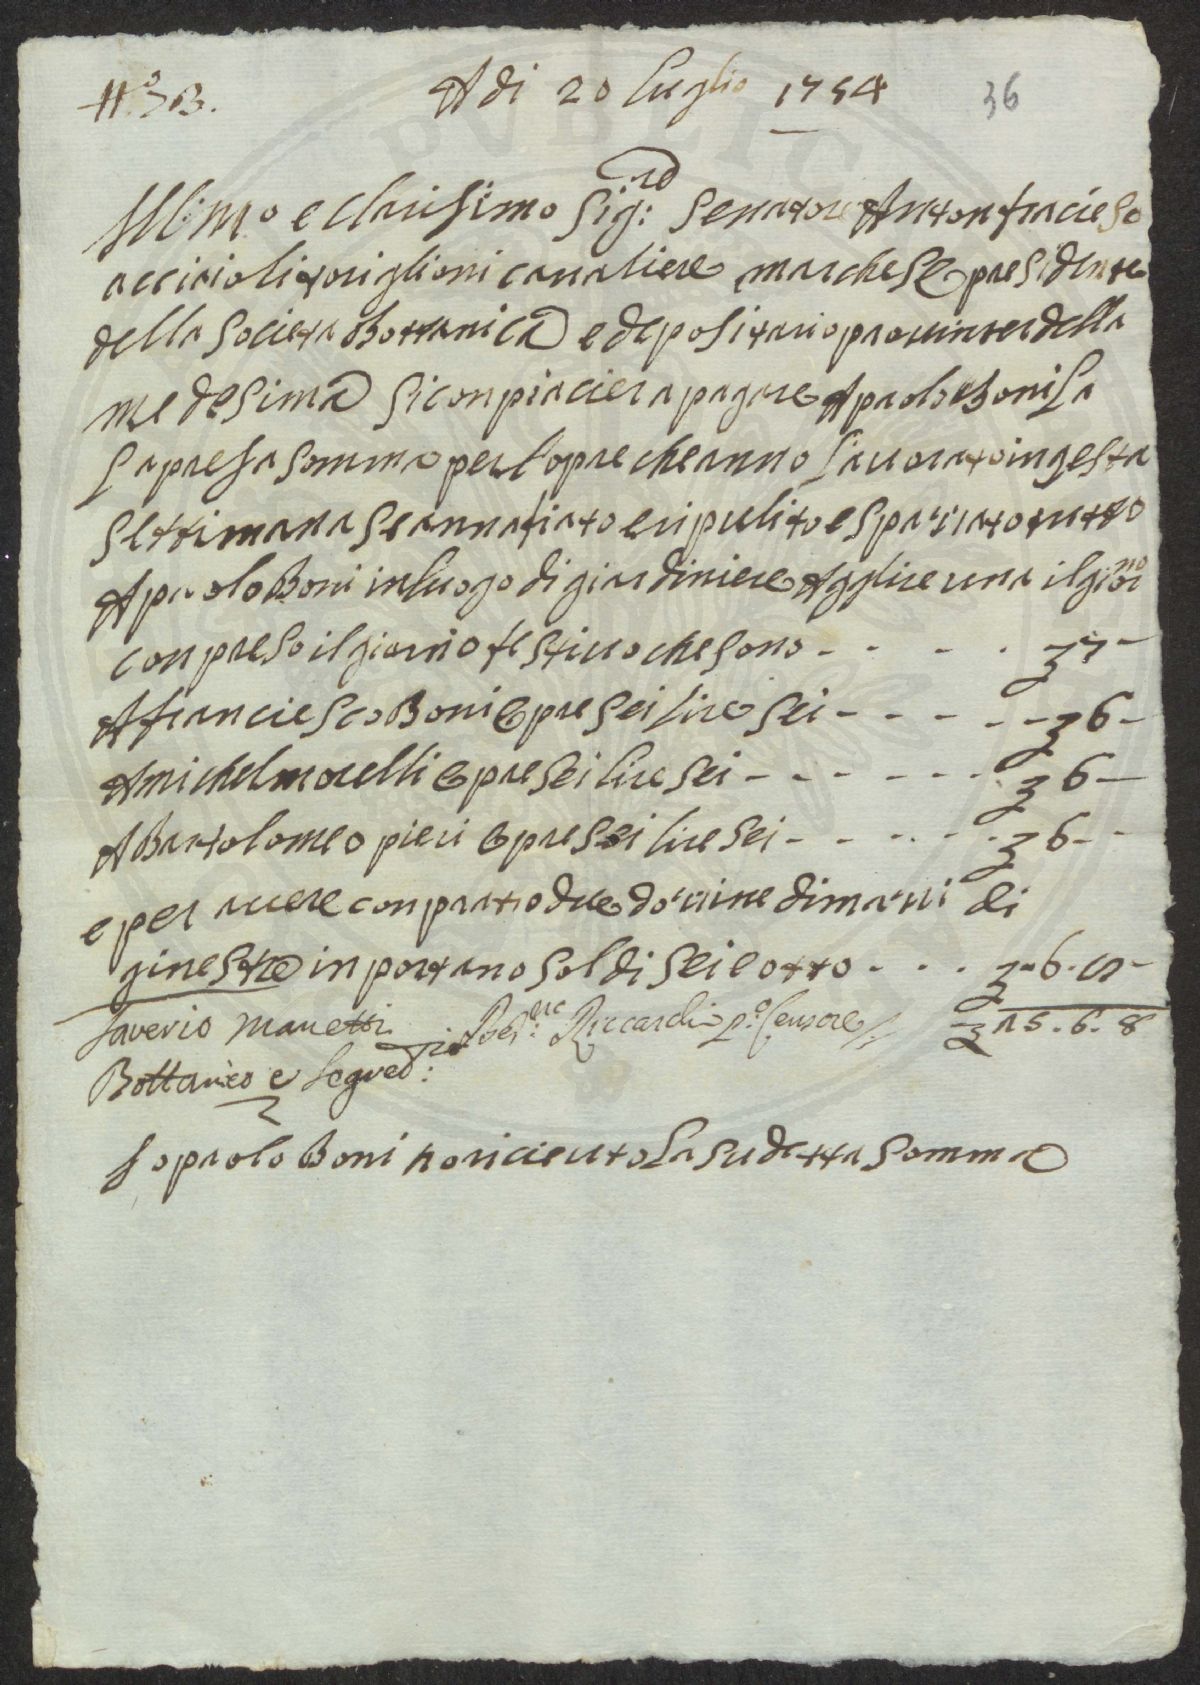 N.° 3 B. A di 20 luglio 1754 36
Ill:mo e clarisimo Sig:re Senatore Anton francieso
acciaioli toriglioni cavaliere marchese presidente
della societa Bottanica e depositario pro interi della
medesima si conpiaciera pagare A paolo Boni La
La presa somma per l'opre che anno Lavorato in qesta
settimana se annafiato e ripulito e spaziato tutto
A paolo Boni in luogo di giardiniere A glire una il gior:no
conpreso il giorno festivo che sono - - - - £ 7 -
A franciesco Boni e opre sei lire sei - - - - - £ 6 -
A michel morelli e opre sei lire sei - - - - - - £ 6 -
A Bartolomeo pieri e opre sei lire sei - - - - - £ 6 - -
e per avere conprato due dozzine di mazzi di
ginestre inportano soldi sei e otto - - - £ - 6 . 8 -
Saverio Manetti Riccardi p.° Censore £ 25 . 6 . 8
Bottanico e Segret:rio
Io paolo Boni ho riceuto La sudetta somma